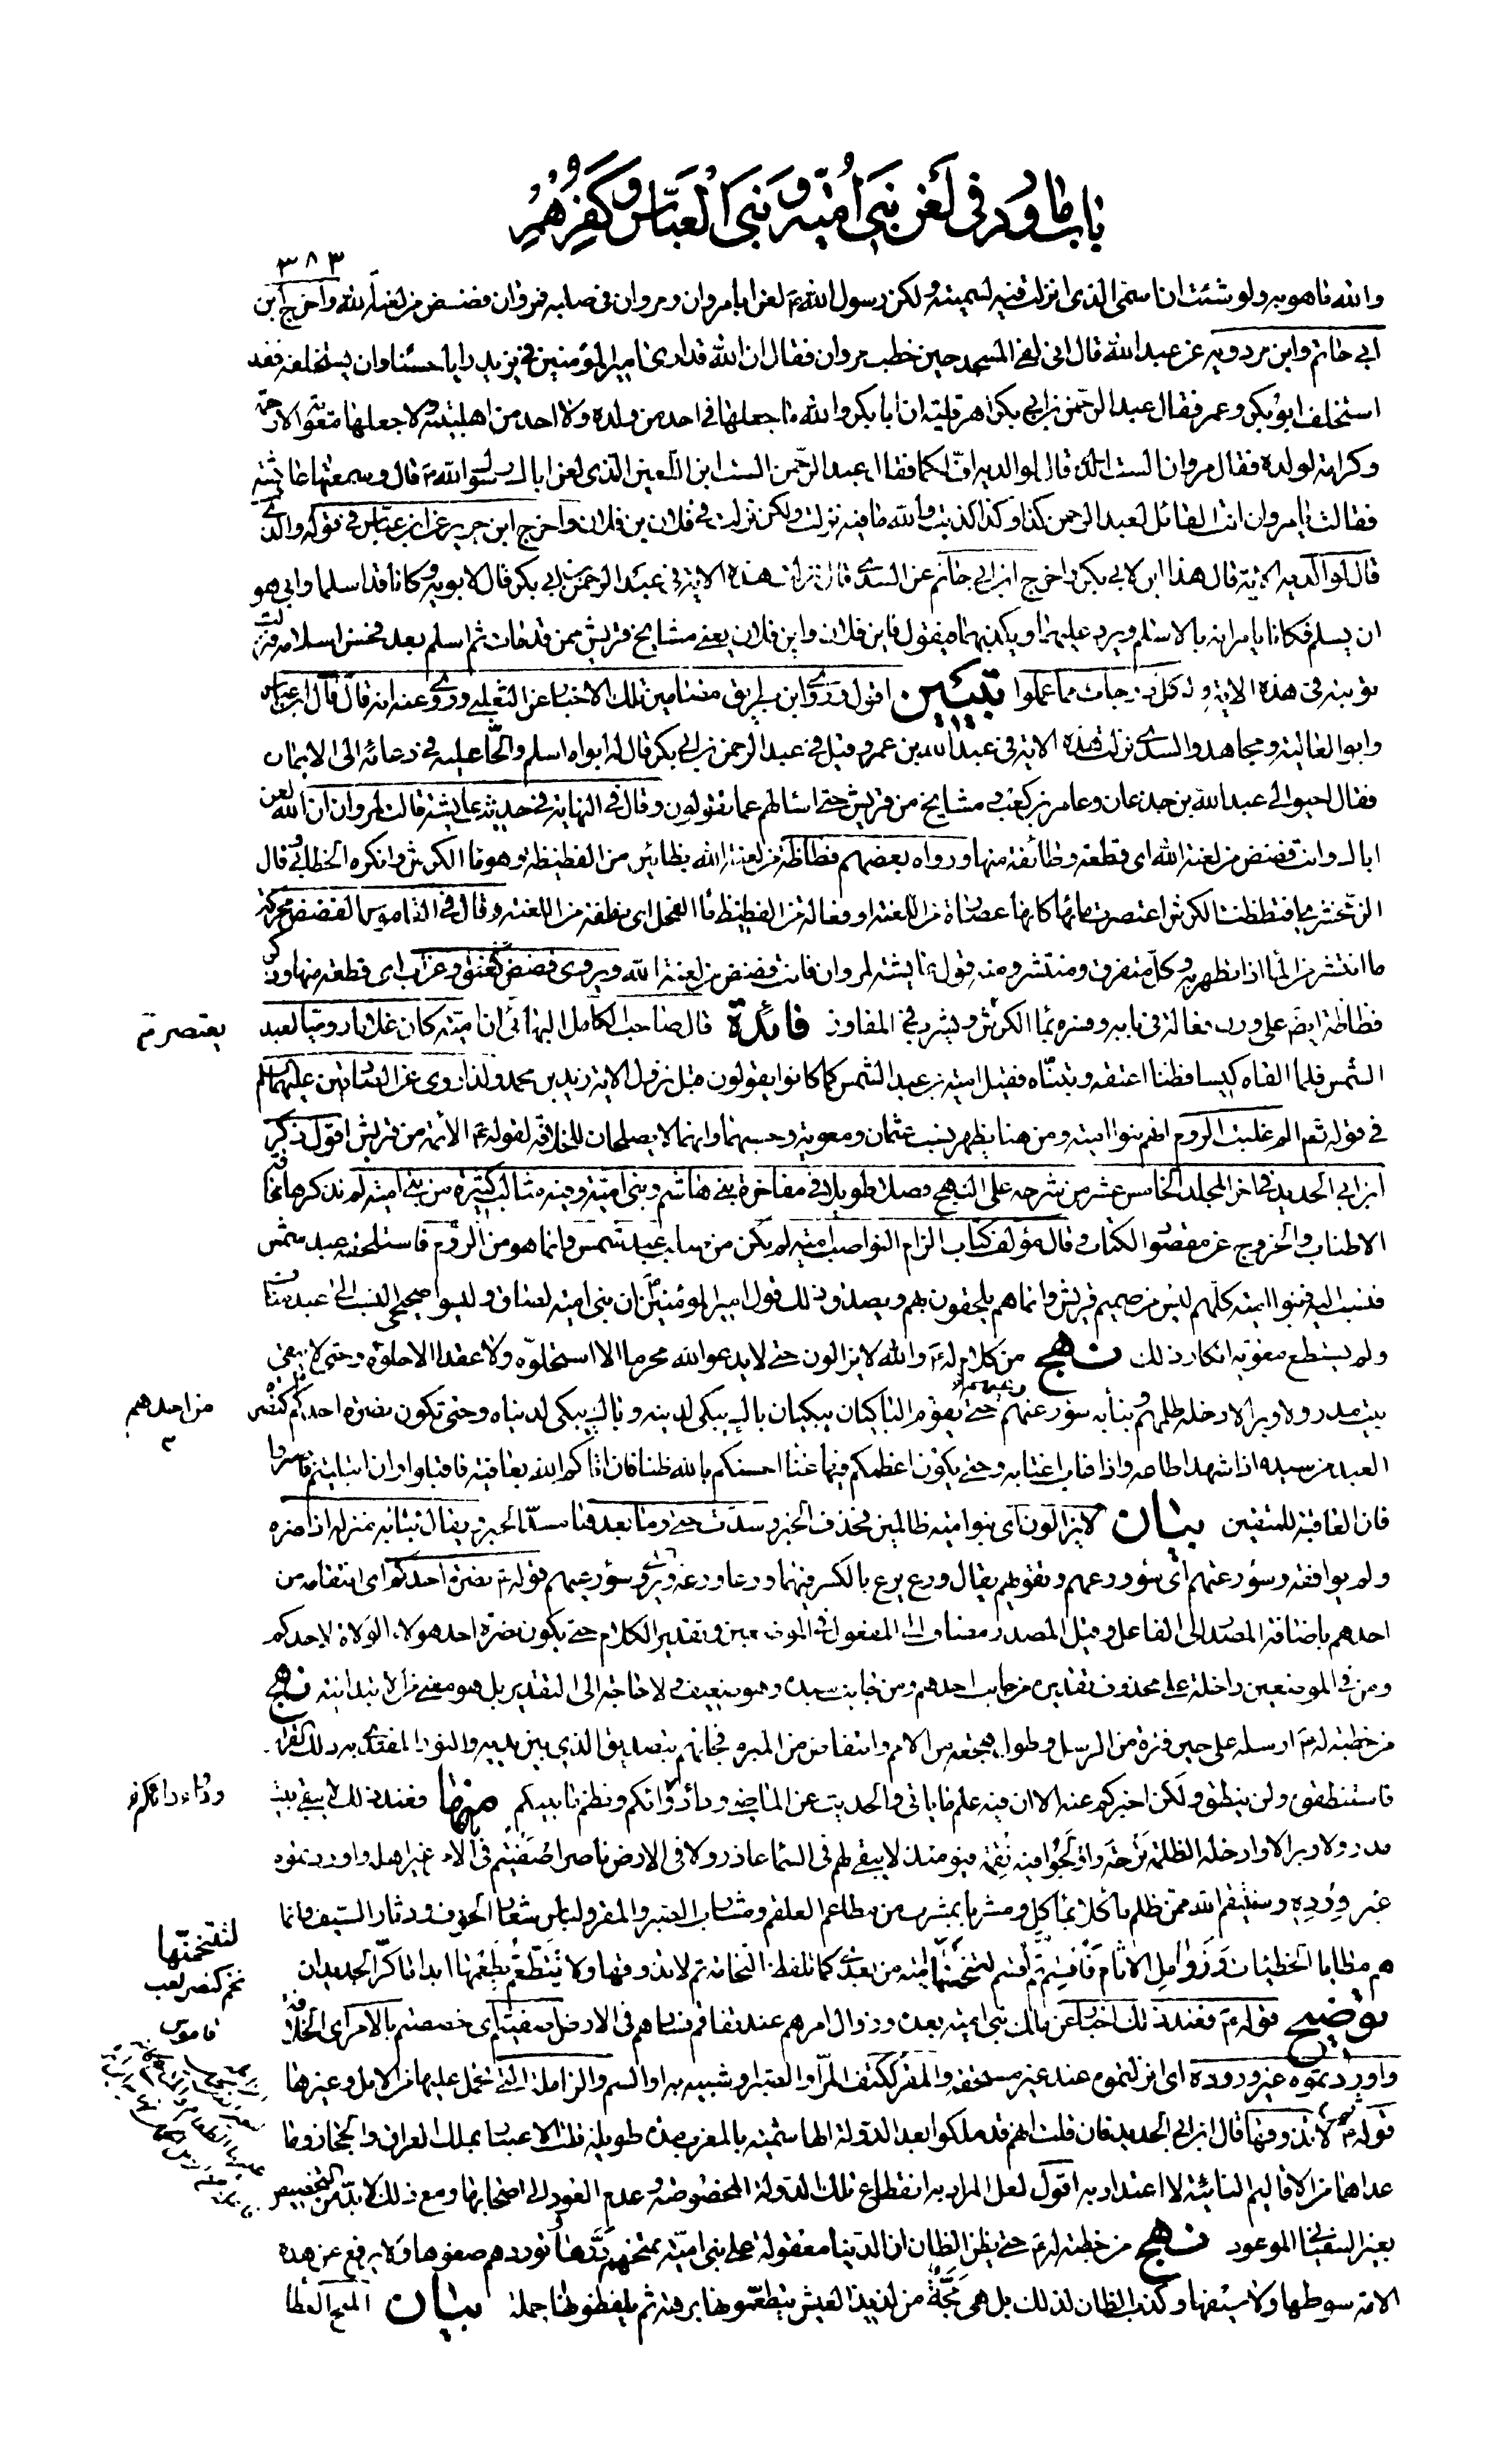 باب ما ورد في لعن بني أمية وبني العباس وكفرهم
٣٨٣
والله ما هو به ولو شئت ان اسمى الذى انزلت فيه لسميته ولكن رسول الله ص لعن ابا مروان ومروان في صلبه فمروان فضض من لعنة الله واخرج ابن
ابي حاتم وابن مردويه عن عبد الله قال انى لفي المسجد حين خطب مروان فقال ان الله قد ارى امير المؤمنين في يزيد رايا حسنا وان يستخلفه فقد
استخلف ابو بكر وعمر فقال عبد الرحمن بن ابي بكر اهرقلية ان ابا بكر والله ما جعلها في احد من ولده ولا احد من اهل بيته ولا جعلها معوية الا رحمة
وكرامة لولده فقال مروان الست الذى قال لوالديه اف لكما فقال عبد الرحمن الست ابن اللعين الذى لعن اباك رسول الله ص قال وسمعتها عايشة
فقالت يا مروان انت القائل لعبد الرحمن كذا وكذا كذبت والله ما فيه نزلت ولكن نزلت في فلان بن فلان واخرج ابن جرير عن ابن عباس في قوله والذي
قال لوالديه الاية قال هذا ابن لابي بكر واخرج ابن ابي حاتم عن السدي قال نزلت هذه الاية في عبد الرحمن بن ابي بكر قال لابويه وكانا قد اسلما وابى هو
ان يسلم فكانا يامرانه بالاسلام ويرد عليهما ويكذبهما فيقول فاين فلان واين فلان يعني مشايخ قريش ممن قد مات ثم اسلم بعد فحسن اسلامه فنزلت
توبته في هذه الاية ولكل درجات مما عملوا تبيين اقول وروى ابن بطريق مضامين تلك الاخبار عن الثعلبي وروى عنه انه قال قال ابن عباس
وابو العالية ومجاهد والسدي نزلت هذه الاية في عبد الله بن عمر وقيل في عبد الرحمن بن ابي بكر قال له ابواه اسلم والحا عليه في دعائه الى الايمان
فقال احيوا لي عبد الله بن جدعان وعامر بن كعب ومشايخ من قريش حتى اسألهم عما يقولون وقال في النهاية في حديث عايشة قالت لمروان ان الله لعن
اباك وانت فضض من لعنة الله اى قطعة وطائفة منها ورواه بعضهم فظاظة من لعنة الله بظائين من الفظيظة وهو ماء الكرش وانكره الخطابي وقال
الزمخشرى افتظظت الكرش اعتصرت ماءها كانها عصارة من اللعنة او فعالة من الفظيظ ماء الفحل اى نطفة من اللعنة وقال في القاموس الفضض محركة
ما انتشر من الماء اذا تطهر به وكل متفرق ومنتشر ومنه قول عايشة لمروان فانت فضض من لعنة الله ويروى فضض كعنق وغراب اى قطعة منها وذكر
فظاظة ايضا على وزن فعالة في بابه وفسره بماء الكرش ويشرب في المفاوز فائدة قال صاحب الكامل البهائي ان امية كان غلاما روميا لعبد
الشمس فلما القاه كيسا فطنا اعتقه وتبناه فقيل امية بن عبد الشمس كما كانوا يقولون قبل نزول الاية زيد بن محمد ولذا روى عن الصادقين عليهما السلم
في قوله تعالى الم غلبت الروم انهم بنوا امية ومن هنا يظهر نسب عثمان ومعوية وحسبهما وانهما لا يصلحان للخلافة لقوله ص الأئمة من قريش اقول ذكر
ابن ابي الحديد في اخر المجلد الخامس عشر من شرحه على النهج فصلا طويلا في مفاخرة بني هاشم وبني امية وفيه مثالب كثيرة من بني امية لم نذكرها مخافة
الاطناب والخروج عن مقصود الكتاب وقال مؤلف كتاب الزام النواصب امية لم يكن من صلب عبد شمس وانما هو من الروم فاستلحقه عبد شمس
فنسب اليه فبنوا امية كلهم ليس من صميم قريش وانما هم يلحقون بهم ويصدق ذلك قول امير المؤمنين ع ان بني امية لصاق وليسوا صحيحي النسب الى عبد مناف
ولم يستطع معوية انكار ذلك نهج من كلام له ع والله لا يزالون حتى لا يدعوا لله محرما الا استحلوه ولا عقدا الا حلوه وحتى لا يبقى
بيت مدر ولا وبر الا دخله ظلمهم ونبا به سوء رعيهم حتى يقوم الباكيان يبكيان باك يبكى لدينه وباك يبكى لدنياه وحتى تكون نصرة احدكم كنصرة
العبد من سيده اذا شهد اطاعه واذا غاب اغتابه وحتى يكون اعظمكم فيها عناء احسنكم بالله ظنا فان اتاكم الله بعافية فاقبلوا وان ابتليتم فاصبروا
فان العاقبة للمتقين بيان لا يزالون اى بنو امية ظالمين فحذف الخبر وسدت حتى وما بعدها مسد الخبر ويقال نبا به منزله اذا ضره
ولم يوافقه وسوء رعيهم اى سوء ورعهم وتقواهم يقال ورع يرع بالكسر فيهما ورعا ورعة ويروى سوء رعيهم قوله ع نصرة احدكم اى انتقامه من
احدهم باضافة المصدر الى الفاعل وقيل المصدر مضاف الى المفعول في الموضعين وتقدير الكلام حتى يكون نصرة احد هؤلاء الولاة لاحدكم
ومن في الموضعين داخلة على محذوف تقديره من جانب احدهم ومن جانب سيده وهو ضعيف ولا حاجة الى التقدير بل هو معنى من الابتدائية نهج
من خطبة له ع ارسله على حين فترة من الرسل وطول هجعة من الامم وانتقاض من المبرم فجاءهم بتصديق الذي بين يديه والنور المقتدى به ذلك القران
فاستنطقوه ولن ينطق ولكن اخبركم عنه الا ان فيه علم ما ياتي والحديث عن الماضي ودواء دائكم ونظم ما بينكم منها فعند ذلك لا يبقى بيت
مدر ولا وبر الا وادخله الظلمة ترحة واولجوا فيه نقمة فيومئذ لا يبقى لهم في السماء عاذر ولا في الارض ناصر اصفيتم في الامر غير اهله واوردتموه
غير ورده وسينتقم الله ممن ظلم ماكلا بماكل ومشربا بمشرب من مطاعم العلقم ومشارب الصبر والمقر ولباس شعار الخوف ودثار السيف وانما
هم مطايا الخطيئات وزوامل الاثام فاقسم ثم اقسم لتنخمنها امية من بعدي كما تلفظ النخامة ثم لا تذوقها ولا تتطعم بطعمها ابدا ما كر الجديدان
توضيح قوله ع فعند ذلك اخبار عن ملك بني امية بعده وزوال امرهم عند تفاقم فسادهم في الارض اصفيتم اى خصصتم بالامر اى الخلافة
واوردتموه غير ورده اى انزلتموه عند غير مستحقه والمقر ككتف المر او الصبر او شبيه به او السم والزاملة التي تحمل عليها من الابل وغيرها
قوله ع ثم لا تذوقها قال ابن ابي الحديد فان قلت انهم قد ملكوا بعد الدولة الهاشمية بالمغرب مدة طويلة قلت الاعتبار بملك العراق والحجاز وما
عداهما من الاقاليم النائية لا اعتداد به اقول لعل المراد به انقطاع تلك الدولة المخصوصة وعدم العود الى اصحابها ومع ذلك لا بد من التخصيص
بغير السفياني الموعود نهج من خطبة له ع حتى يظن الظان ان الدنيا معقولة على بني امية تمنحهم درها وتوردهم صفوها ولا يرفع عن هذه
الامة سوطها ولا سيفها وكذب الظان لذلك بل هي مجة من لذيذ العيش يتطعمونها برهة ثم يلفظونها جملة بيان المنح العطاء
يعتصر
من احدهم
ودواء دائكم
لتنتخمنها
نخم كنصر لعب
قاموس